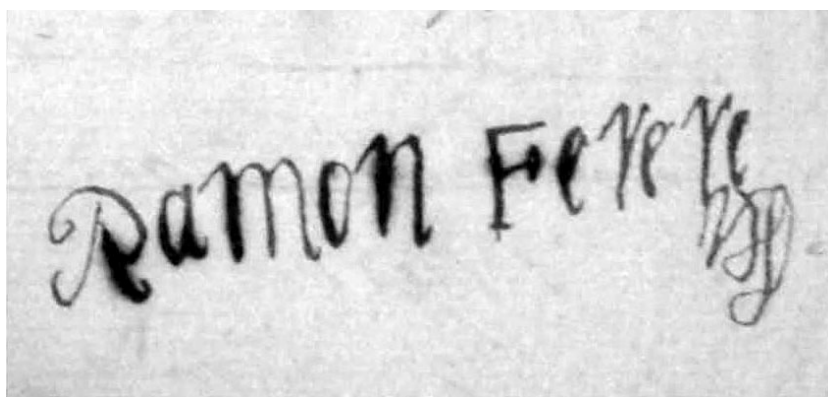 Ramon Ferere